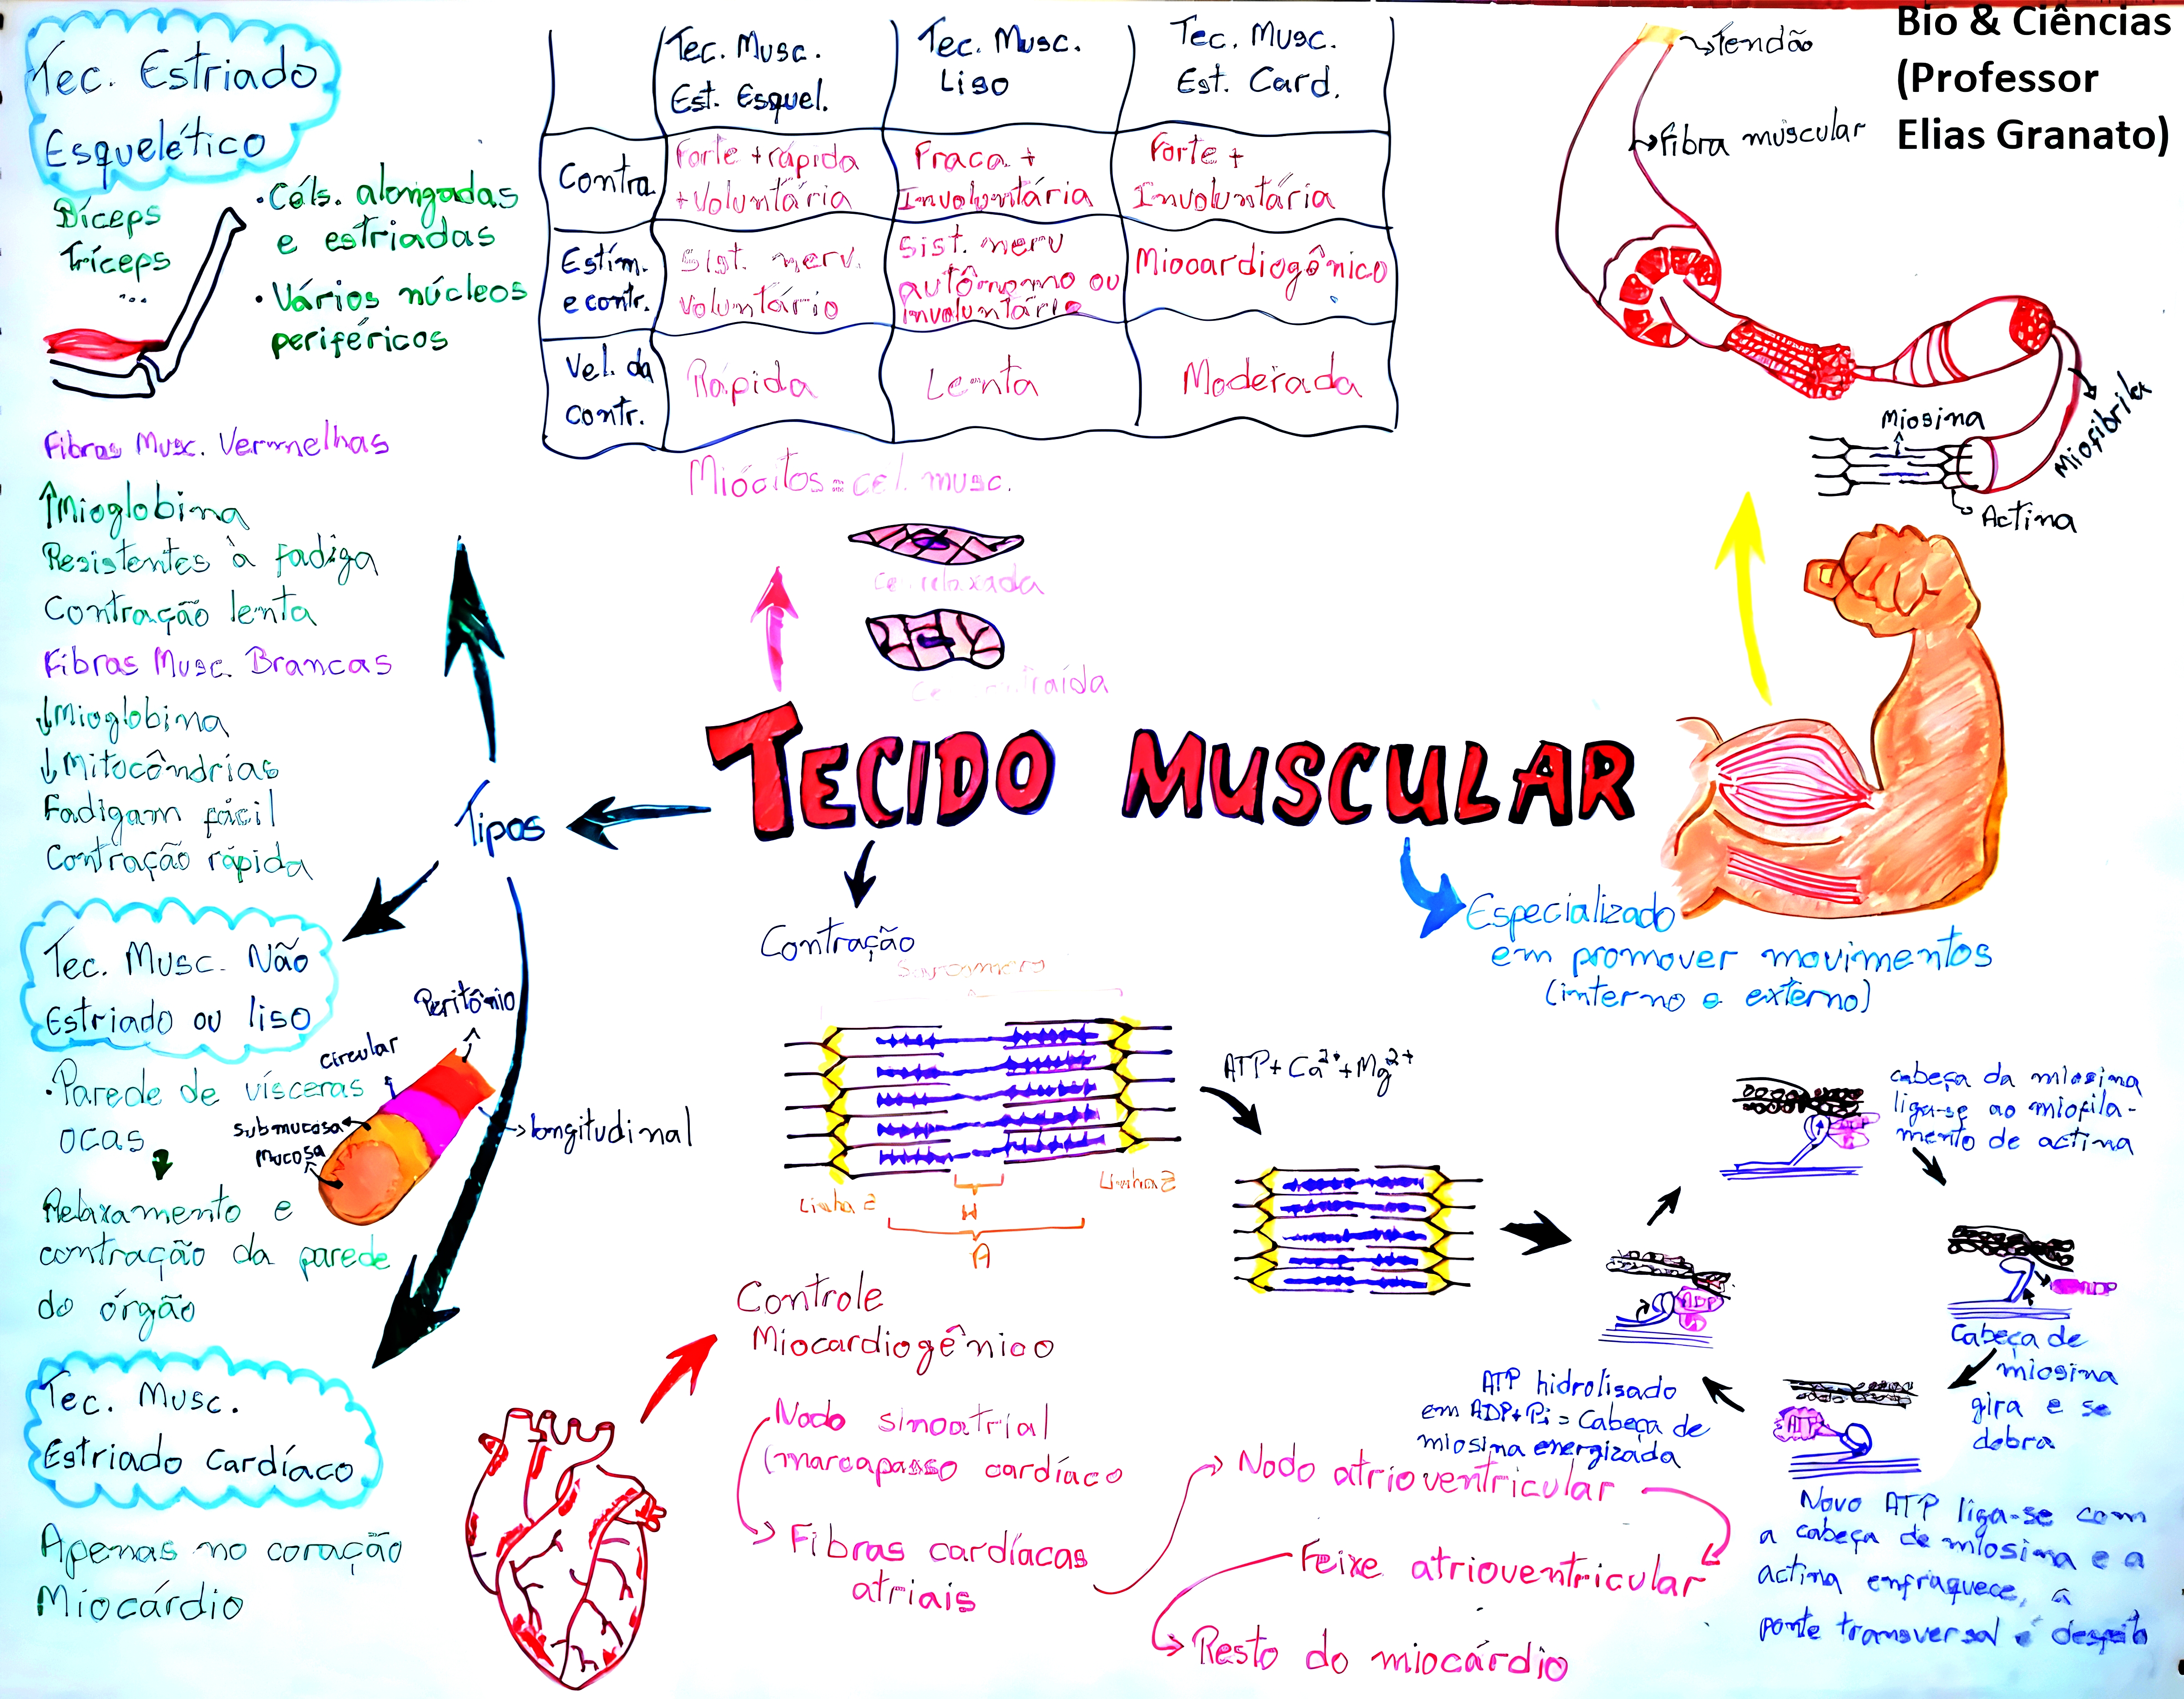 Bio & Ciências
(Professor
Elias Granato)
Tec. Estriado
Esquelético
Bíceps
Tríceps
...
• Céls. alongadas
e estriadas
• Vários núcleos
periféricos
Fibras Musc. Vermelhas
↑Mioglobina
Resistentes à fadiga
Contração lenta
Fibras Musc. Brancas
↓Mioglobina
↓Mitocôndrias
Fadigam fácil
Contração rápida
Tec. Musc.
Est. Esquel.
Tec. Musc.
Liso
Tec. Musc.
Est. Card.
Contra.
Forte + rápida
+ Voluntária
Fraca +
Involuntária
Forte +
Involuntária
Estím.
e contr.
Sist. nerv.
voluntário
Sist. nerv
autônomo ou
involuntário
Miocardiogênico
Vel. da
contr.
Rápida
Lenta
Moderada
Miócitos = cel. musc.
relaxada
Tendão
Fibra muscular
Miofibrila
Miosina
Actina
TECIDO MUSCULAR
Tipos
Contração
Especializado
em promover movimentos
(interno e externo)
Tec. Musc. Não
Estriado ou liso
• Parede de vísceras
ocas
Relaxamento e
contração da parede
do órgão
Peritônio
circular
submucosa
mucosa
longitudinal
Linha Z
Linha Z
H
A
ATP + Ca2+ + Mg2+
cabeça da miosina
liga-se ao miofila-
mento de actina
ADP
Cabeça de
miosina
gira e se
dobra
ADP
Pi
ATP hidrolisado
em ADP+Pi = Cabeça de
miosina energizada
ATP
Novo ATP liga-se com
a cabeça de miosina e a
actina enfraquece, a
ponte transversal é
Tec. Musc.
Estriado Cardíaco
Apenas no coração
Miocárdio
Controle
Miocardiogênico
Nodo sinoatrial
(marcapasso cardíaco
Fibras cardíacas
atriais
Nodo atrioventricular
Feixe atrioventricular
Resto do miocárdio